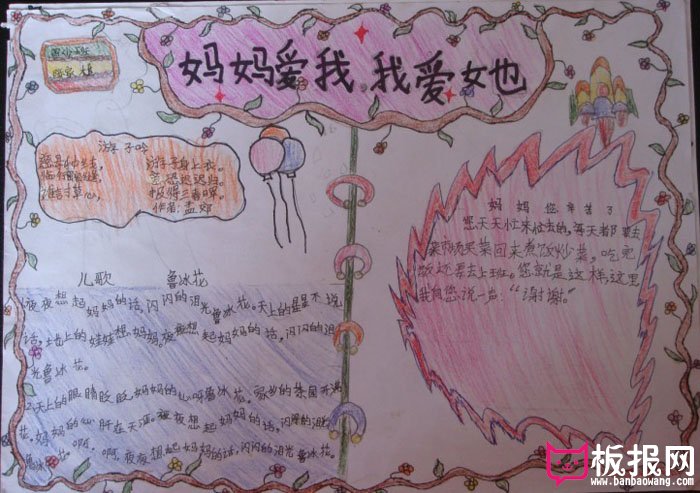 四(2)班
妈妈爱我,我爱她
游子吟
慈母手中线,游子身上衣。
临行密密缝,意恐迟迟归。
谁言寸草心,报得三春晖。
作者:孟郊
儿歌 鲁冰花
夜夜想起妈妈的话,闪闪的泪光鲁冰花。天上的星星不说
话,地上的娃娃想妈妈。夜夜想起妈妈的话,闪闪的泪
光鲁冰花。
天上的眼睛眨眨,妈妈的心呀鲁冰花。家乡的茶园开满
花,妈妈的心肝在天涯。夜夜想起妈妈的话,闪闪的泪光
鲁冰花。啊,啊,夜夜想起妈妈的话,闪闪的泪光鲁冰花。
妈妈您辛苦了
您天天忙来忙去的,每天都要去
菜市场买菜回来煮饭炒菜,吃完
饭还要去上班。您就是这样这里
我向您说一声:“谢谢。”
板报网
www.banbaowang.com